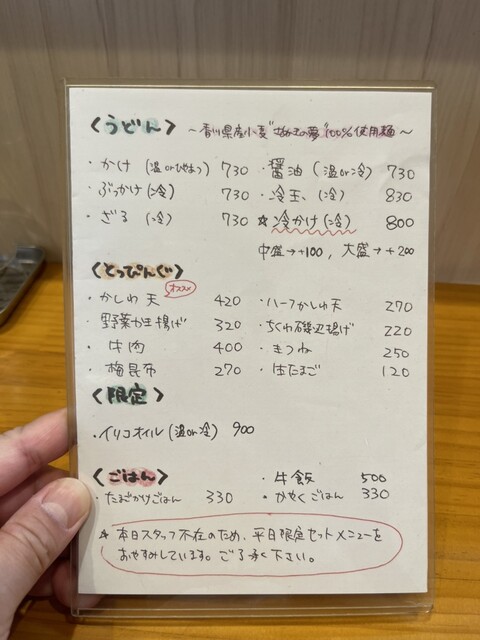 〈うどん〉 ～香川県産小麦"さぬきの夢"100%使用麺～
・かけ (温orひやあつ) 730 ・醤油 (温or冷) 730
・ぶっかけ (冷) 730 ・冷玉 (冷) 830
・ざる (冷) 730 ☆冷かけ (冷) 800
中盛→+100, 大盛→+200
〈とっぴんぐ〉
オススメ
・かしわ天 420 ・ハーフかしわ天 270
・野菜かき揚げ 320 ・ちくわ磯辺揚げ 220
・牛肉 400 ・きつね 250
・梅昆布 270 ・生たまご 120
〈限定〉
・イリコオイル (温or冷) 900
〈ごはん〉 ・牛飯 500
・たまごかけごはん 330 ・かやくごはん 330
☆本日スタッフ不在のため、平日限定セットメニューを
おやすみしています。ご了承下さい。